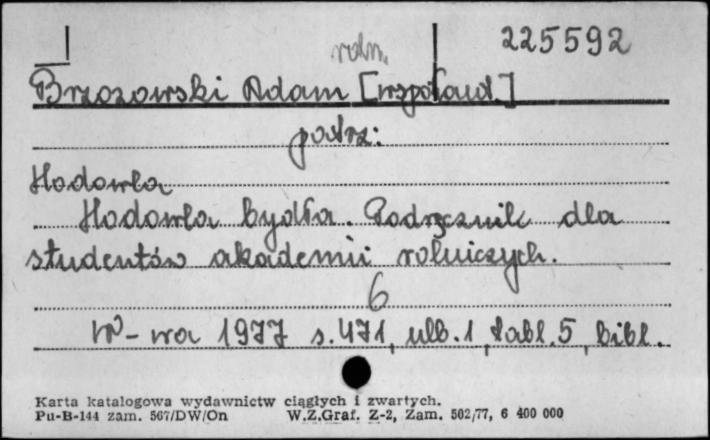 roln. 225592
Brzozowski Adam [współaut.]
patrz:
Hodowla
Hodowla bydła. Podręcznik dla
studentów akademii rolniczych.
6
W-wa 1977 s. 471, nlb. 1, tabl. 5, bibl.
Karta katalogowa wydawnictw ciągłych i zwartych.
Pu-B-144 zam. 567/DW/On W.Z.Graf. Z-2, Zam. 502/77, 6 400 000